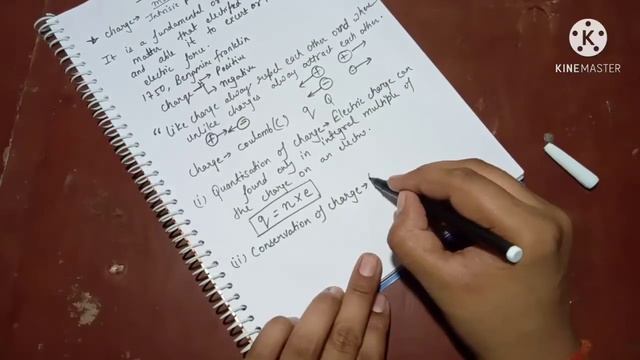 charge→ Intrisic
It is a fundamental
matter that
and able it to exert or
electric force.
1750, Benjamin Franklin
charge → Positive
negative
"Like charge always repel each other and where
unlike charges always attract each other.
q Q
charge → coulomb(c)
(i) Quantisation of charge→ Electric charge can
found only in integral multiple of
the charge on an electro.
q = n×e
(ii) Conservation of charge→
K
KINEMASTER